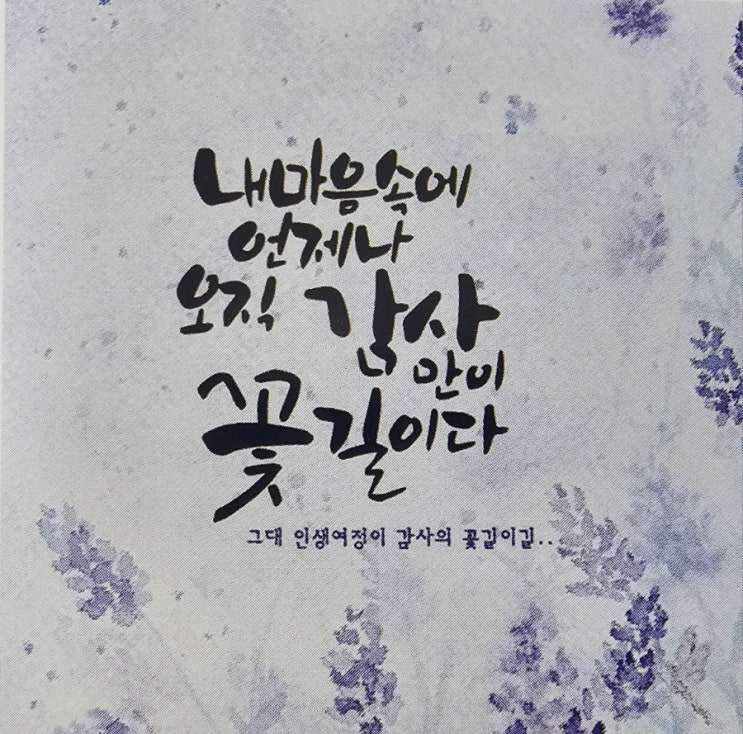 내마음속에
언제나
오직 감사
만이
꽃길이다
그대 인생여정이 감사의 꽃길이길..